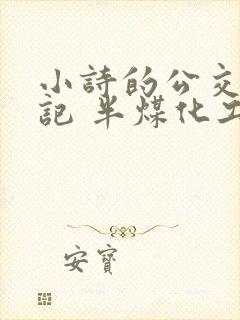 小詩的公交
記 半煤化工
安寶